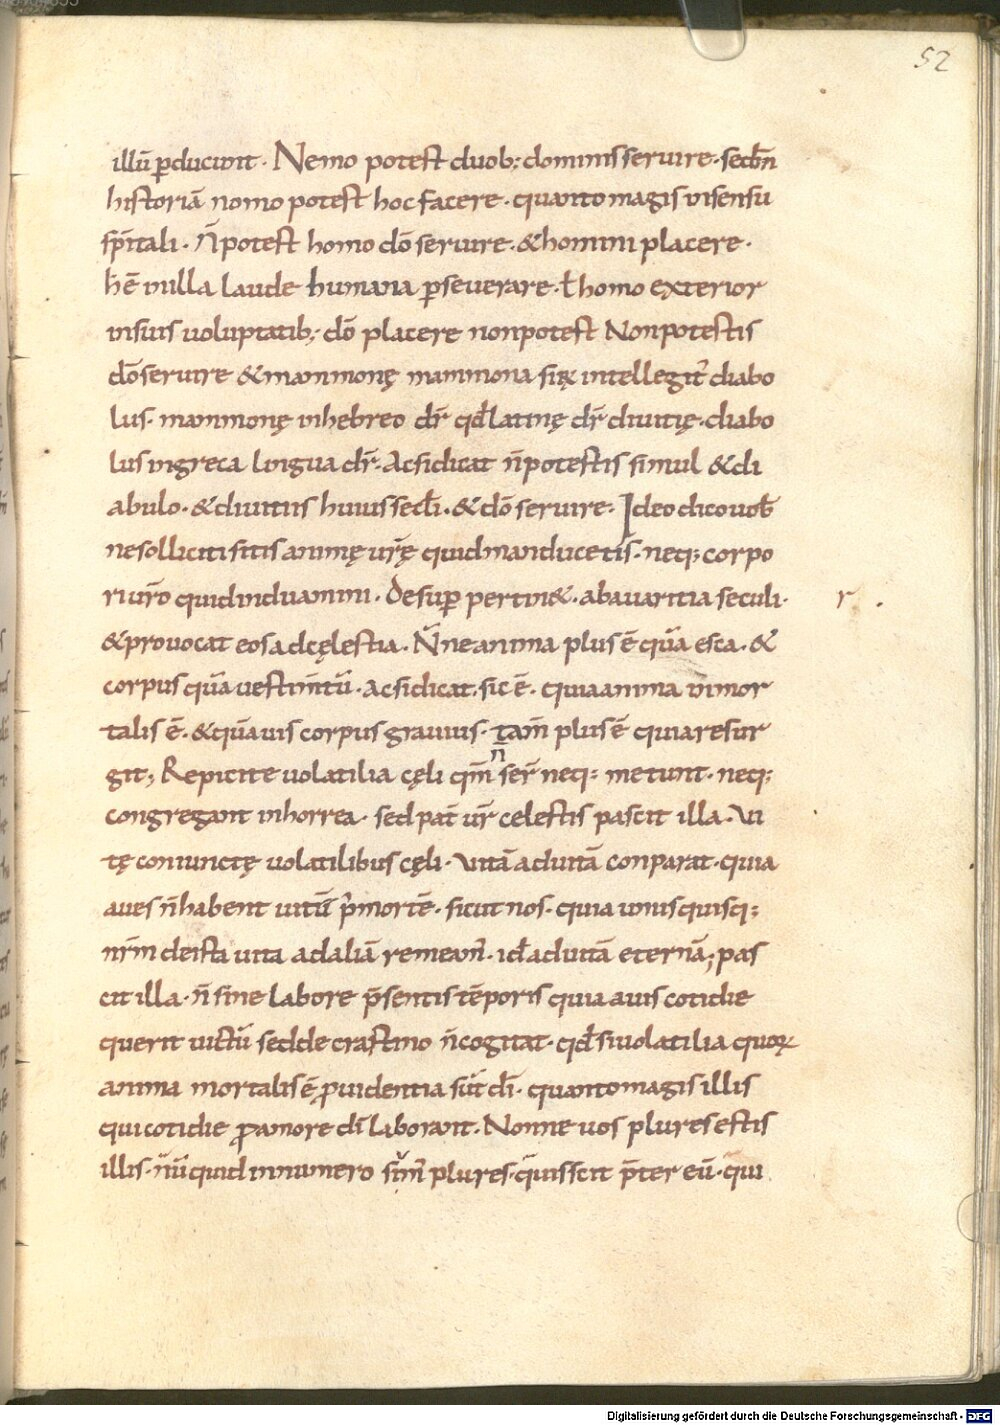 52
illū ꝑducunt · Nemo potest duob; dominis seruire · secdn̄
historiā nomo potest hoc facere · quanto magis in sensu
sp̄itali · n̄ potest homo dō seruire · & homini placere ·
h̄ ē nulla laude humana ꝑseuerare · ł homo exterior
in suis uoluptatib; dō placere non potest Non potestis
dō seruire & mammonę mammona siꝶ intellegit̄ diabo
lus · mammonę in hebreo dr̄ qd̄ latinę dr̄ diuitię · diabo
lus in greca lingua dr̄ · Ac si dicat n̄ potestis simul & di
abulo · & diuitiis huius secl̄i · & dō seruire · Ideo dico uob̄
ne solliciti sitis animę ur̄ę quid manducetis · neq; corpo
ri ur̄o quid induamini · Desuꝑ pertin& · ab auaritia seculi ·
r ·
& prouocat eos ad cęlestia · N̄ne anima plus ē quā esca · &
corpus quā uestim̄tū · ac si dicat · sic ē · quia anima inmor
talis ē · & quāuis corpus grauius · tam̄ plus ē quia resur
git; Repicite uolatilia cęli qm̄ n̄ ser̄ neq; metunt · neq;
congregant in horrea · sed pat̄ ur̄ celestis pascit illa · Vi
tę coniunctę uolatilibus cęli · Vitā ad uitā conparat · quia
aues n̄ habent uitū p̄ mortē · sicut nos · quia unusquisq;
nr̄m de ista uita ad aliā remean̄ · id̄ ad uitā eternā; pas
cit illa · n̄ sine labore p̄sentis tēporis quia auis cotidie
querit uictū sed de crastino n̄ cogitat · qd̄ si uolatilia quoꝝ
anima mortalis ē ꝓuidentia sūt dī · quanto magis illis
qui cotidie ꝓ amore dī laborant · Nonne uos plures estis
illis · nū quid in numero sim̄ plures · quis scit p̄ter eū · qui
Digitalisierung gefördert durch die Deutsche Forschungsgemeinschaft - DFG